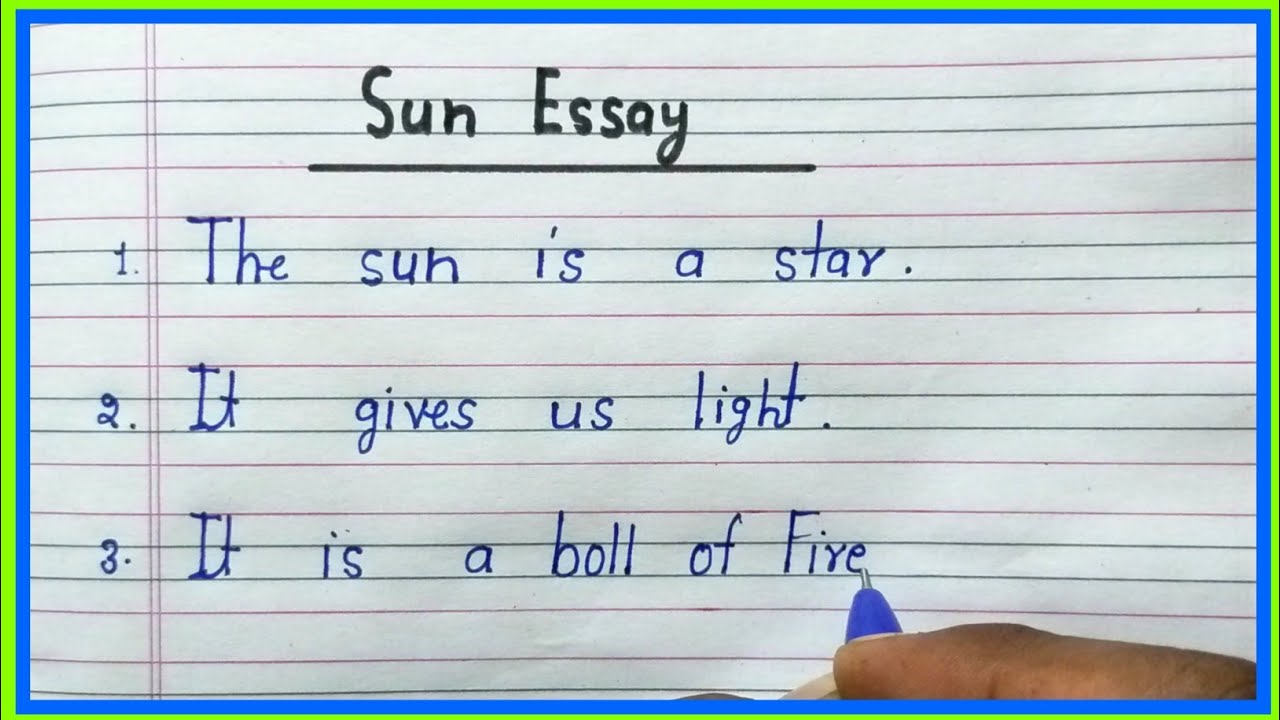 Sun Essay
1. The sun is a star.
2. It gives us light.
3. It is a boll of Fire